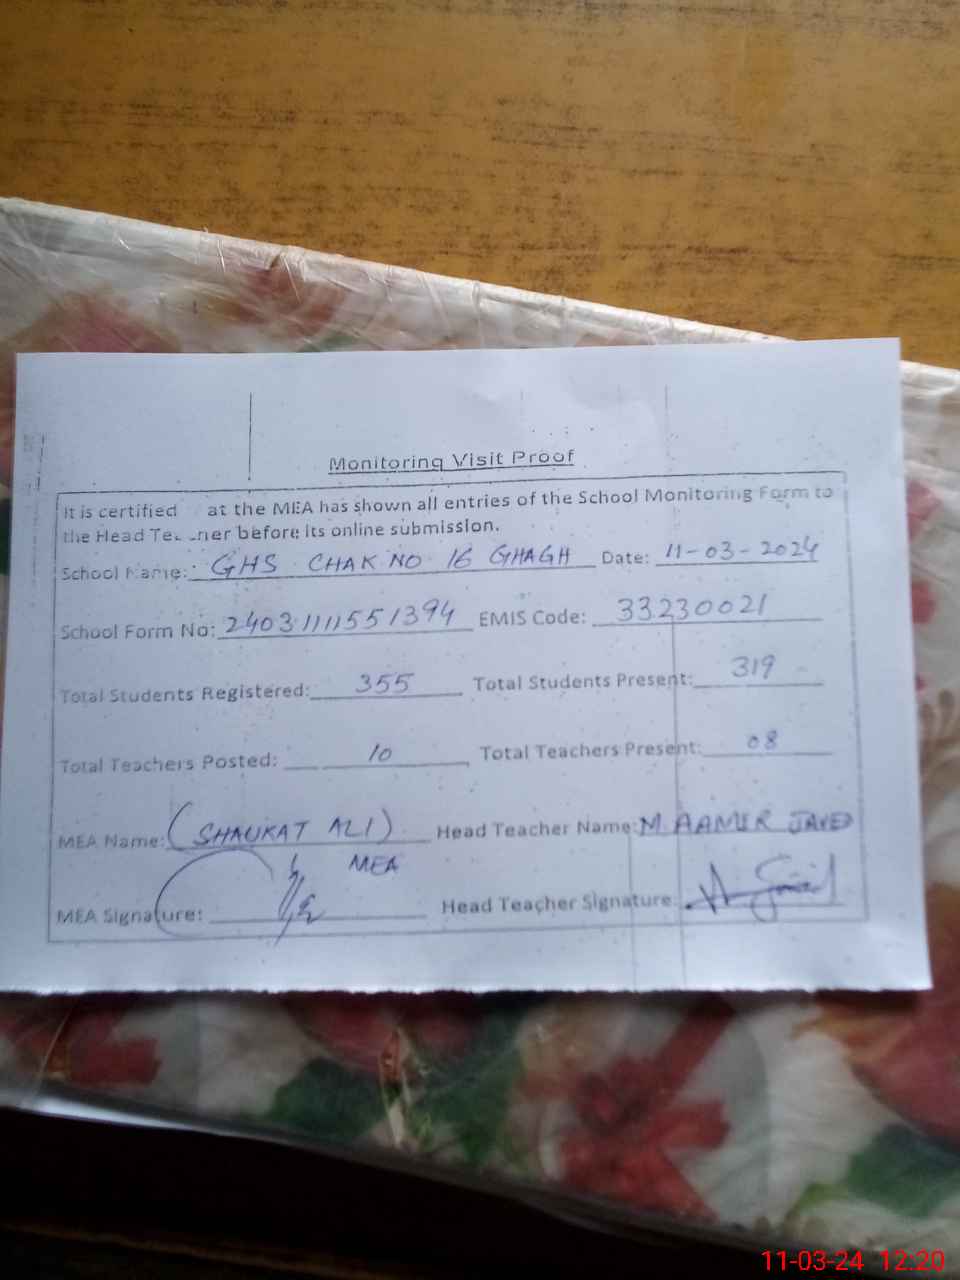 Monitoring Visit Proof
It is certified at the MEA has shown all entries of the School Monitoring Form to
the Head before its online submission.
School Name: GHS CHAK NO 16 GHAGH Date: 11-03-2024
School Form No: 24031111551394 EMIS Code: 33230021
Total Students Registered: 355 Total Students Present: 319
Total Teachers Posted: 10 Total Teachers Present: 08
MEA Name: (SHAUKAT ALI) Head Teacher Name: M. AAMER JAVED
MEA
MEA Signature: Head Teacher Signature:
11-03-24 12:20